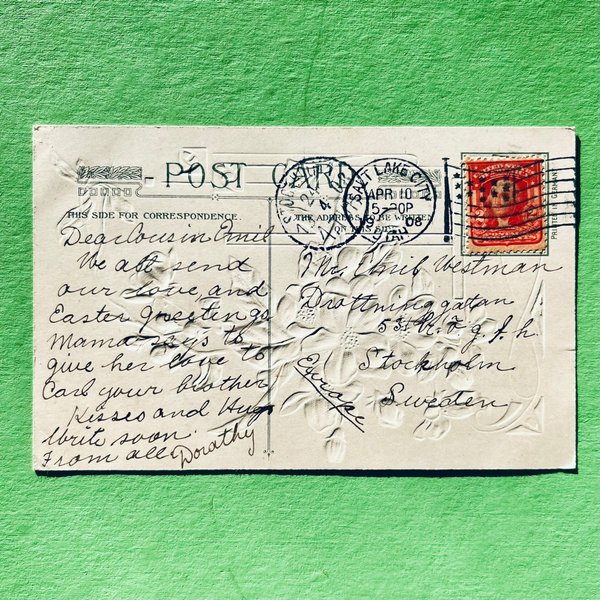 POST CARD
THIS SIDE FOR CORRESPONDENCE.
THE ADDRESS TO BE WRITTEN
ON THIS SIDE
SALT LAKE CITY
APR 10
5-20P
1908
UTAH
PRINTED IN GERMANY
Dear Cousin Emil
We all send
our love and
Easter Greetings
Mama says to
give her love to
Carl your brother
Kisses and Hugs
Write soon.
From all Dorathy
Mr. Emil Westman
Drottninggatan
Stockholm
Sweden
Europe